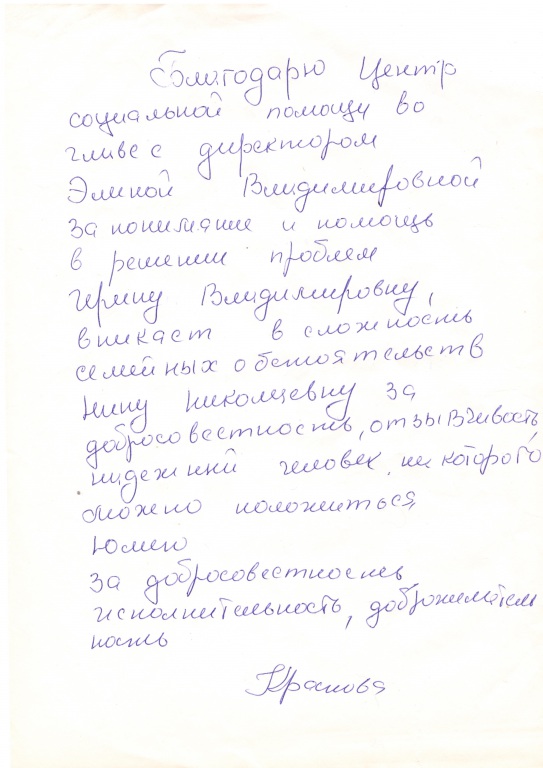 Благодарю Центр
социальной помощи во
главе с директором
Элиной Владимировной
за понимание и помощь
в решении проблем
Ирину Владимировну,
вникает в сложность
семейных обстоятельств
Нину Николаевну за
добросовестность, отзывчивость,
надежный человек, на которого
можно положиться
Юлию
за добросовестность
исполнительность, доброжелатель
ность